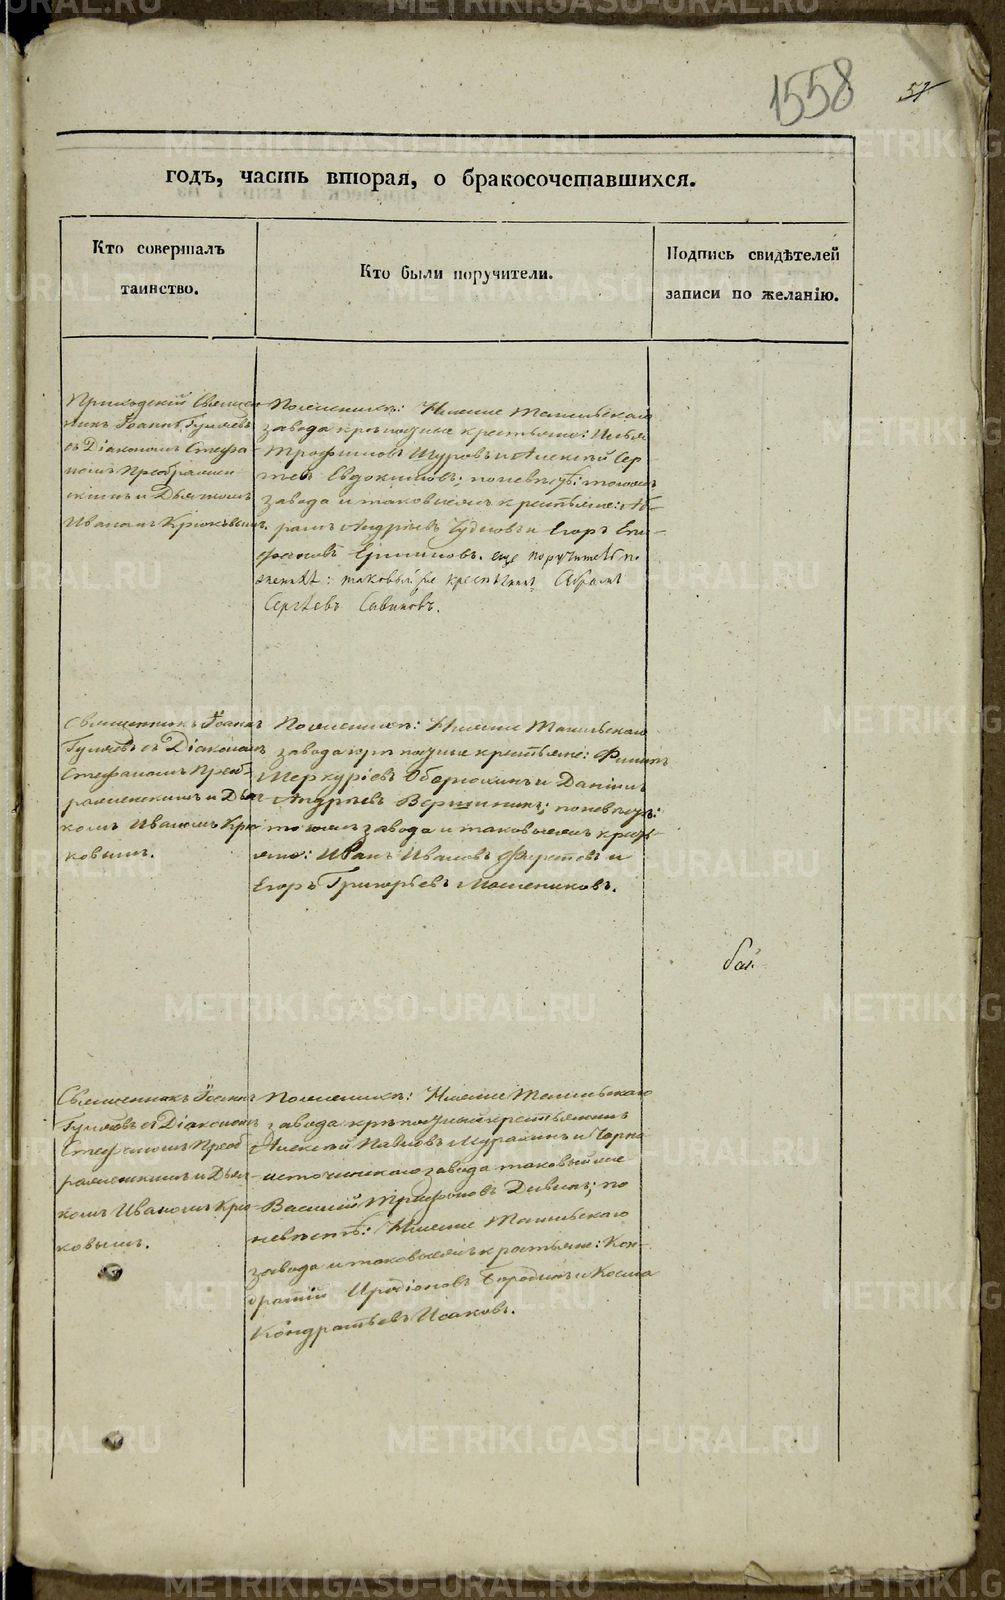 1558
57
годъ, часть вторая, о бракосочетавшихся.
Кто совершалъ
таинство.
Кто были поручители.
Подпись свидѣтелей
записи по желанію.
Приходскій Священ
никъ Іоаннъ Гуляевъ
съ Діакономъ Стефа
номъ Преображен
скимъ и Дьячкомъ
Иваномъ Крюковымъ.
По женихѣ: Нижне Тагильскаго
завода крѣпостные крестьяне: Илья
Трофимовъ Шуровъ и Алексѣй Сер
гѣев Евдокимовъ; по невѣстѣ: тогожъ
завода и таковыежъ крестьяне: Аб-
рамъ Андреевъ Чудиовъ и Егоръ Епи-
фановъ еще поручитель по
женихѣ: таковый же крестьянинъ Абрамъ
Сергѣевъ Савиновъ.
Священникъ Іоаннъ
Гуляевъ съ Діакономъ
Стефаномъ Преоб-
раженскимъ и Дьяч-
комъ Иваномъ Крю
ковымъ.
По женихѣ: Нижне Тагильскаго
завода крѣпостные крестьяне: Филипъ
Меркуріевъ Оборюхинъ и Даніилъ
Андреевъ Вершининъ; по невѣстѣ:
тогожъ завода и таковыежъ кресть-
яне: Иванъ Ивановъ и
Егоръ Григорьевъ Мошениковъ.
бай.
Священникъ Іоаннъ
Гуляевъ съ Діакономъ
Стефаномъ Преоб
раженскимъ и Дьяч-
комъ Иваномъ Крю
ковымъ.
По женихѣ: Нижне Тагильскаго
завода крѣпостный крестьянинъ
Алексѣй Павловъ Мурахинъ и Черно
источинскаго завода таковый же
Василій Трифоновъ Дивинъ; по
невѣстѣ: Нижне Тагильскаго
завода и таковыежъ крестьяне: Кон-
дратій Иродіоновъ Бородинъ и Косма
Кондратьевъ Исаковъ.
METRIKI.GASO-URAL.RU